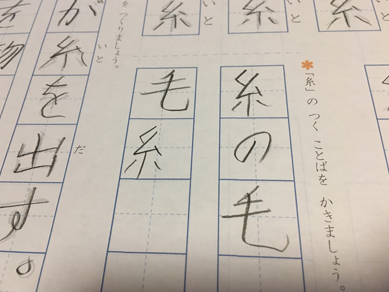 糸 糸 糸
いと いと
*「糸」の つく ことばを かきましょう。
糸の毛
毛糸
をつくりましょう。
が糸を出す。
いと だ
物